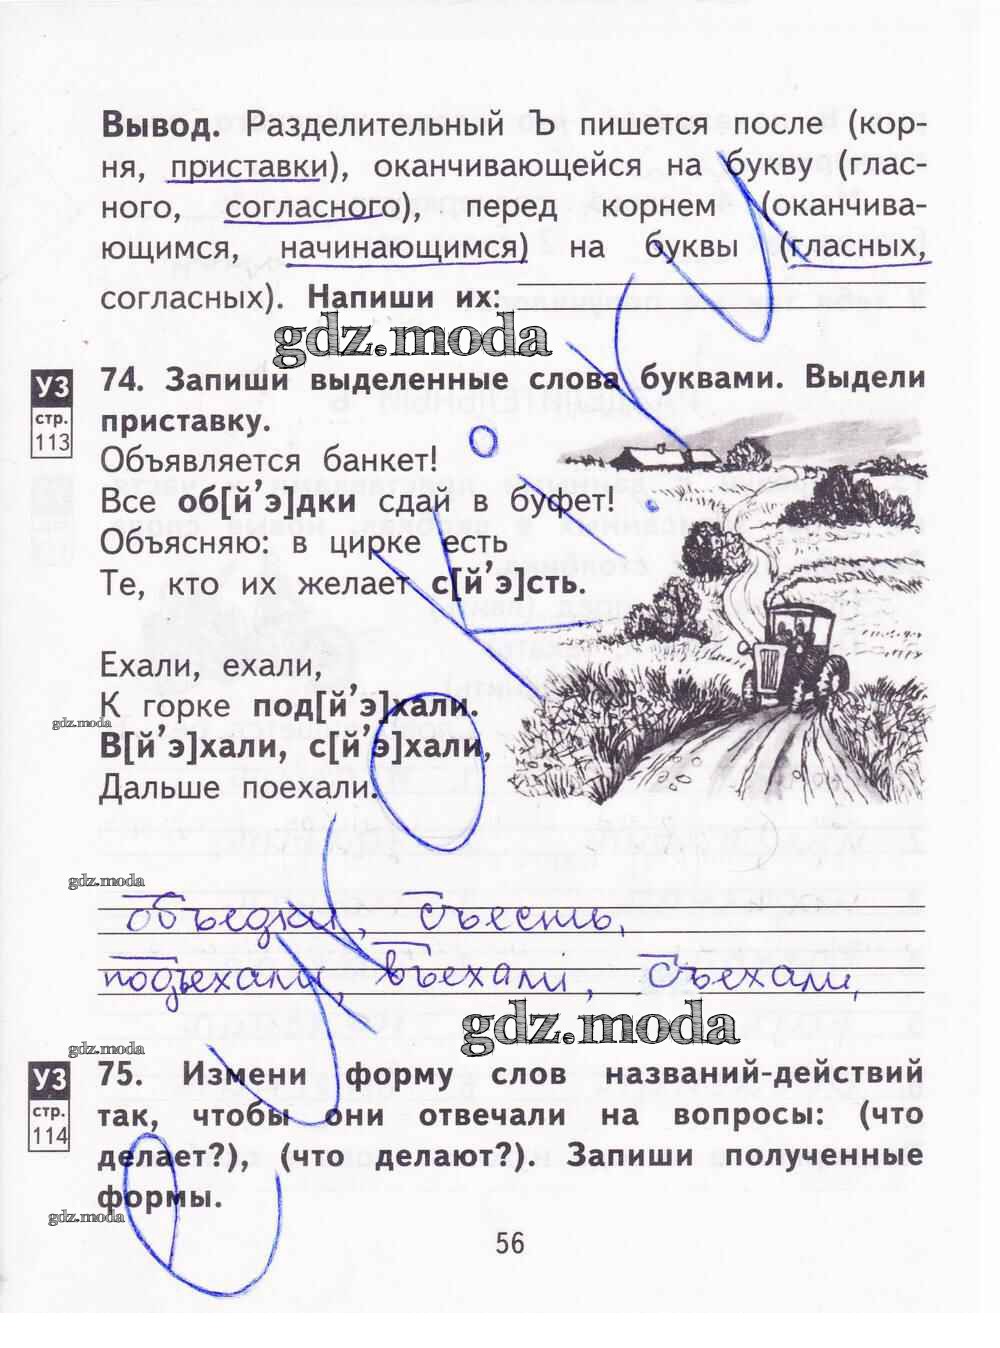 Вывод. Разделительный Ъ пишется после (кор-
ня, приставки), оканчивающейся на букву (глас-
ного, согласного), перед корнем (оканчива-
ющимся, начинающимся) на буквы (гласных,
согласных). Напиши их:
gdz.moda
УЗ
стр.
113
74. Запиши выделенные слова буквами. Выдели
приставку.
Объявляется банкет!
Все об[й'э]дки сдай в буфет!
Объясняю: в цирке есть
Те, кто их желает с[й'э]сть.
Ехали, ехали,
К горке под[й'э]хали.
gdz.moda
В[й'э]хали, с[й'э]хали,
Дальше поехали.
gdz.moda
объедки, съесть,
подъехали, въехали, съехали,
gdz.moda
gdz.moda
УЗ
стр.
114
75. Измени форму слов названий-действий
так, чтобы они отвечали на вопросы: (что
делает?), (что делают?). Запиши полученные
формы.
gdz.moda
56